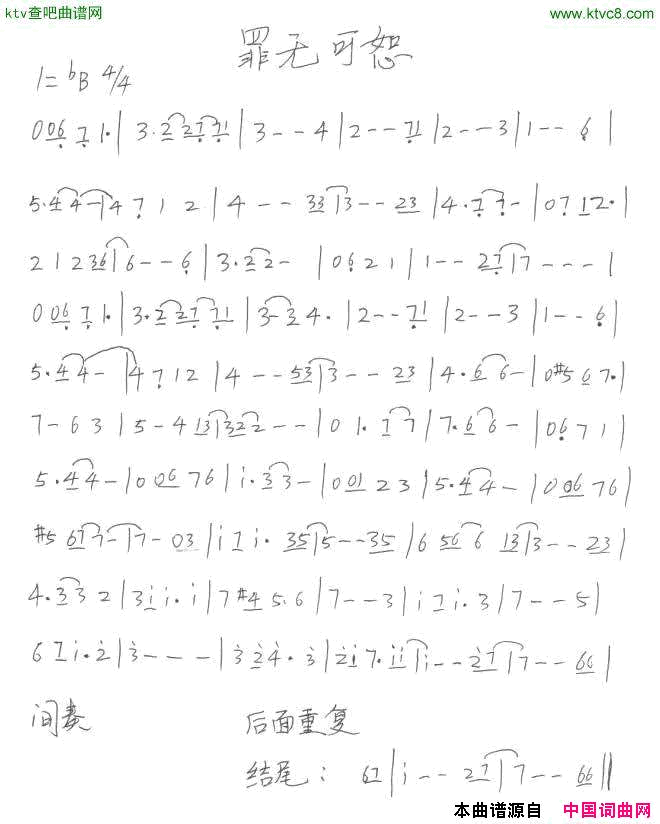 ktv查吧曲谱网 www.ktvc8.com
罪无可恕
1=bB 4/4
006 7 1·|3·2 27 71|3--4|2--71|2--3|1--6|
5·44-|4 7 1 2|4--33|3--23|4·77-|0 7 12·|
2 1 2 36|6--6|3·22-|0 6 2 1|1--27|7---|
006 7 1·|3·2 27 71|3-34·|2--71|2--3|1--6|
5·44-|4 7 1 2|4--53|3--23|4·66-|0#5 6 7·|
7-6 3|5-4 13|322--|0 1·77|7·66-|06 7 1|
5·44-|006 76|i·33-|001 2 3|5·44-|006 76|
#5 677-|7-03|i 7 i·35|5--35|6 566 13|3--23|
4·33 2|3i i·i|7 #4 5·6|7--3|i 7 i·3|7--5|
6 7 i·2|3---|3 2 4·3|2i 7·ii|i--27|7--66|
间奏 后面重复
结尾: 67|i--27|7--66||
本曲谱源自 中国词曲网